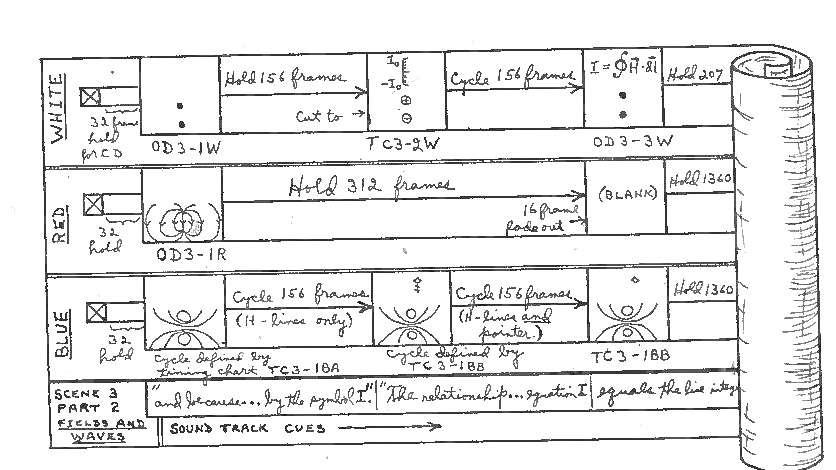 WHITE
32 frame
hold
for CD
OD3-1W
Hold 156 frames
Cut to
I₀
-I₀
⊕
⊖
TC3-2W
Cycle 156 frames
I = ∮H⃗·dl⃗
OD3-3W
Hold 207
RED
32
hold
OD3-1R
Hold 312 frames
16 frame
fade out
(BLANK)
Hold 1360
BLUE
32
hold
Cycle defined by
timing chart TC3-1BA
Cycle 156 frames
(H-lines only)
Cycle defined by
TC3-1BB
Cycle 156 frames
(H-lines and
pointer.)
TC3-1BB
Hold 1360
SCENE 3
PART 2
FIELDS AND
WAVES
"and because... by the symbol I." "The relationship... equation I equals the line integ
SOUND TRACK CUES